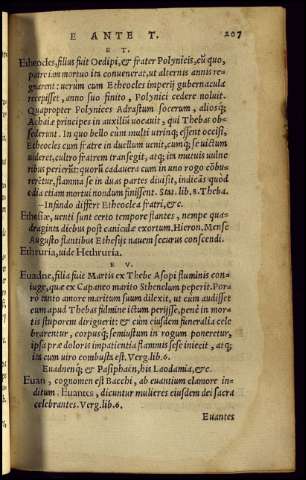 E ANTE T. 207
E T.
Etheocles, filius fuit Oedipi, & frater Polynicis, cū quo,
patre iam mortuo ita conuenerat, ut alternis annis re-
gnarent: uerum cum Etheocles imperij gubernacula
recepisset, anno suo finito, Polynici cedere noluit.
Quapropter Polynices Adrastum socerum, aliosq;
Achaiæ principes in auxiliū uocauit, & qui Thebas ob-
sederunt. In quo bello cum multi utrinq; essent occisi,
Etheocles cum fratre in duellum uenit, cumq; se uictum
uideret, cultro fratrem transegit, atq; ita mutuis uulne
ribus perierūt: quorū cadauera cum in uno rogo cōbu-
rerētur, flamma se in duas partes diuisit, indicās quod
odia etiam mortui nondum finissent. Stat. lib. 8. Theba.
—Infando differt Etheoclea fratri, &c.
Ethesiæ, uenti sunt certo tempore flantes, nempe qua-
draginta diebus post caniculæ exortum. Hieron. Mense
Augusto flantibus Ethesijs nauem securus conscendi.
Ethruria, uide Hethruria.
E V.
Euadne, filia fuit Martis ex Thebe Asopi fluminis con-
iuge, quæ ex Capaneo marito Sthenelum peperit. Por
rò tanto amore maritum suum dilexit, ut cum audisset
eum apud Thebas fulmine ictum perijsse, penè in mor-
tis stuporem diriguerit: & cùm eiusdem funeralia cele
brarentur, corpusq; semiustum in rogum poneretur,
ipsa præ doloris impatientia flammis sese iniecit, atq;
ita cum uiro combusta est. Verg. lib. 6.
Euadnenq; & Pasiphaën, his Laodamia, &c.
Euan, cognomen est Bacchi, ab euantium clamore in-
ditum. Euantes, dicuntur mulieres eiusdem dei sacra
celebrantes. Verg. lib. 6.
Euantes